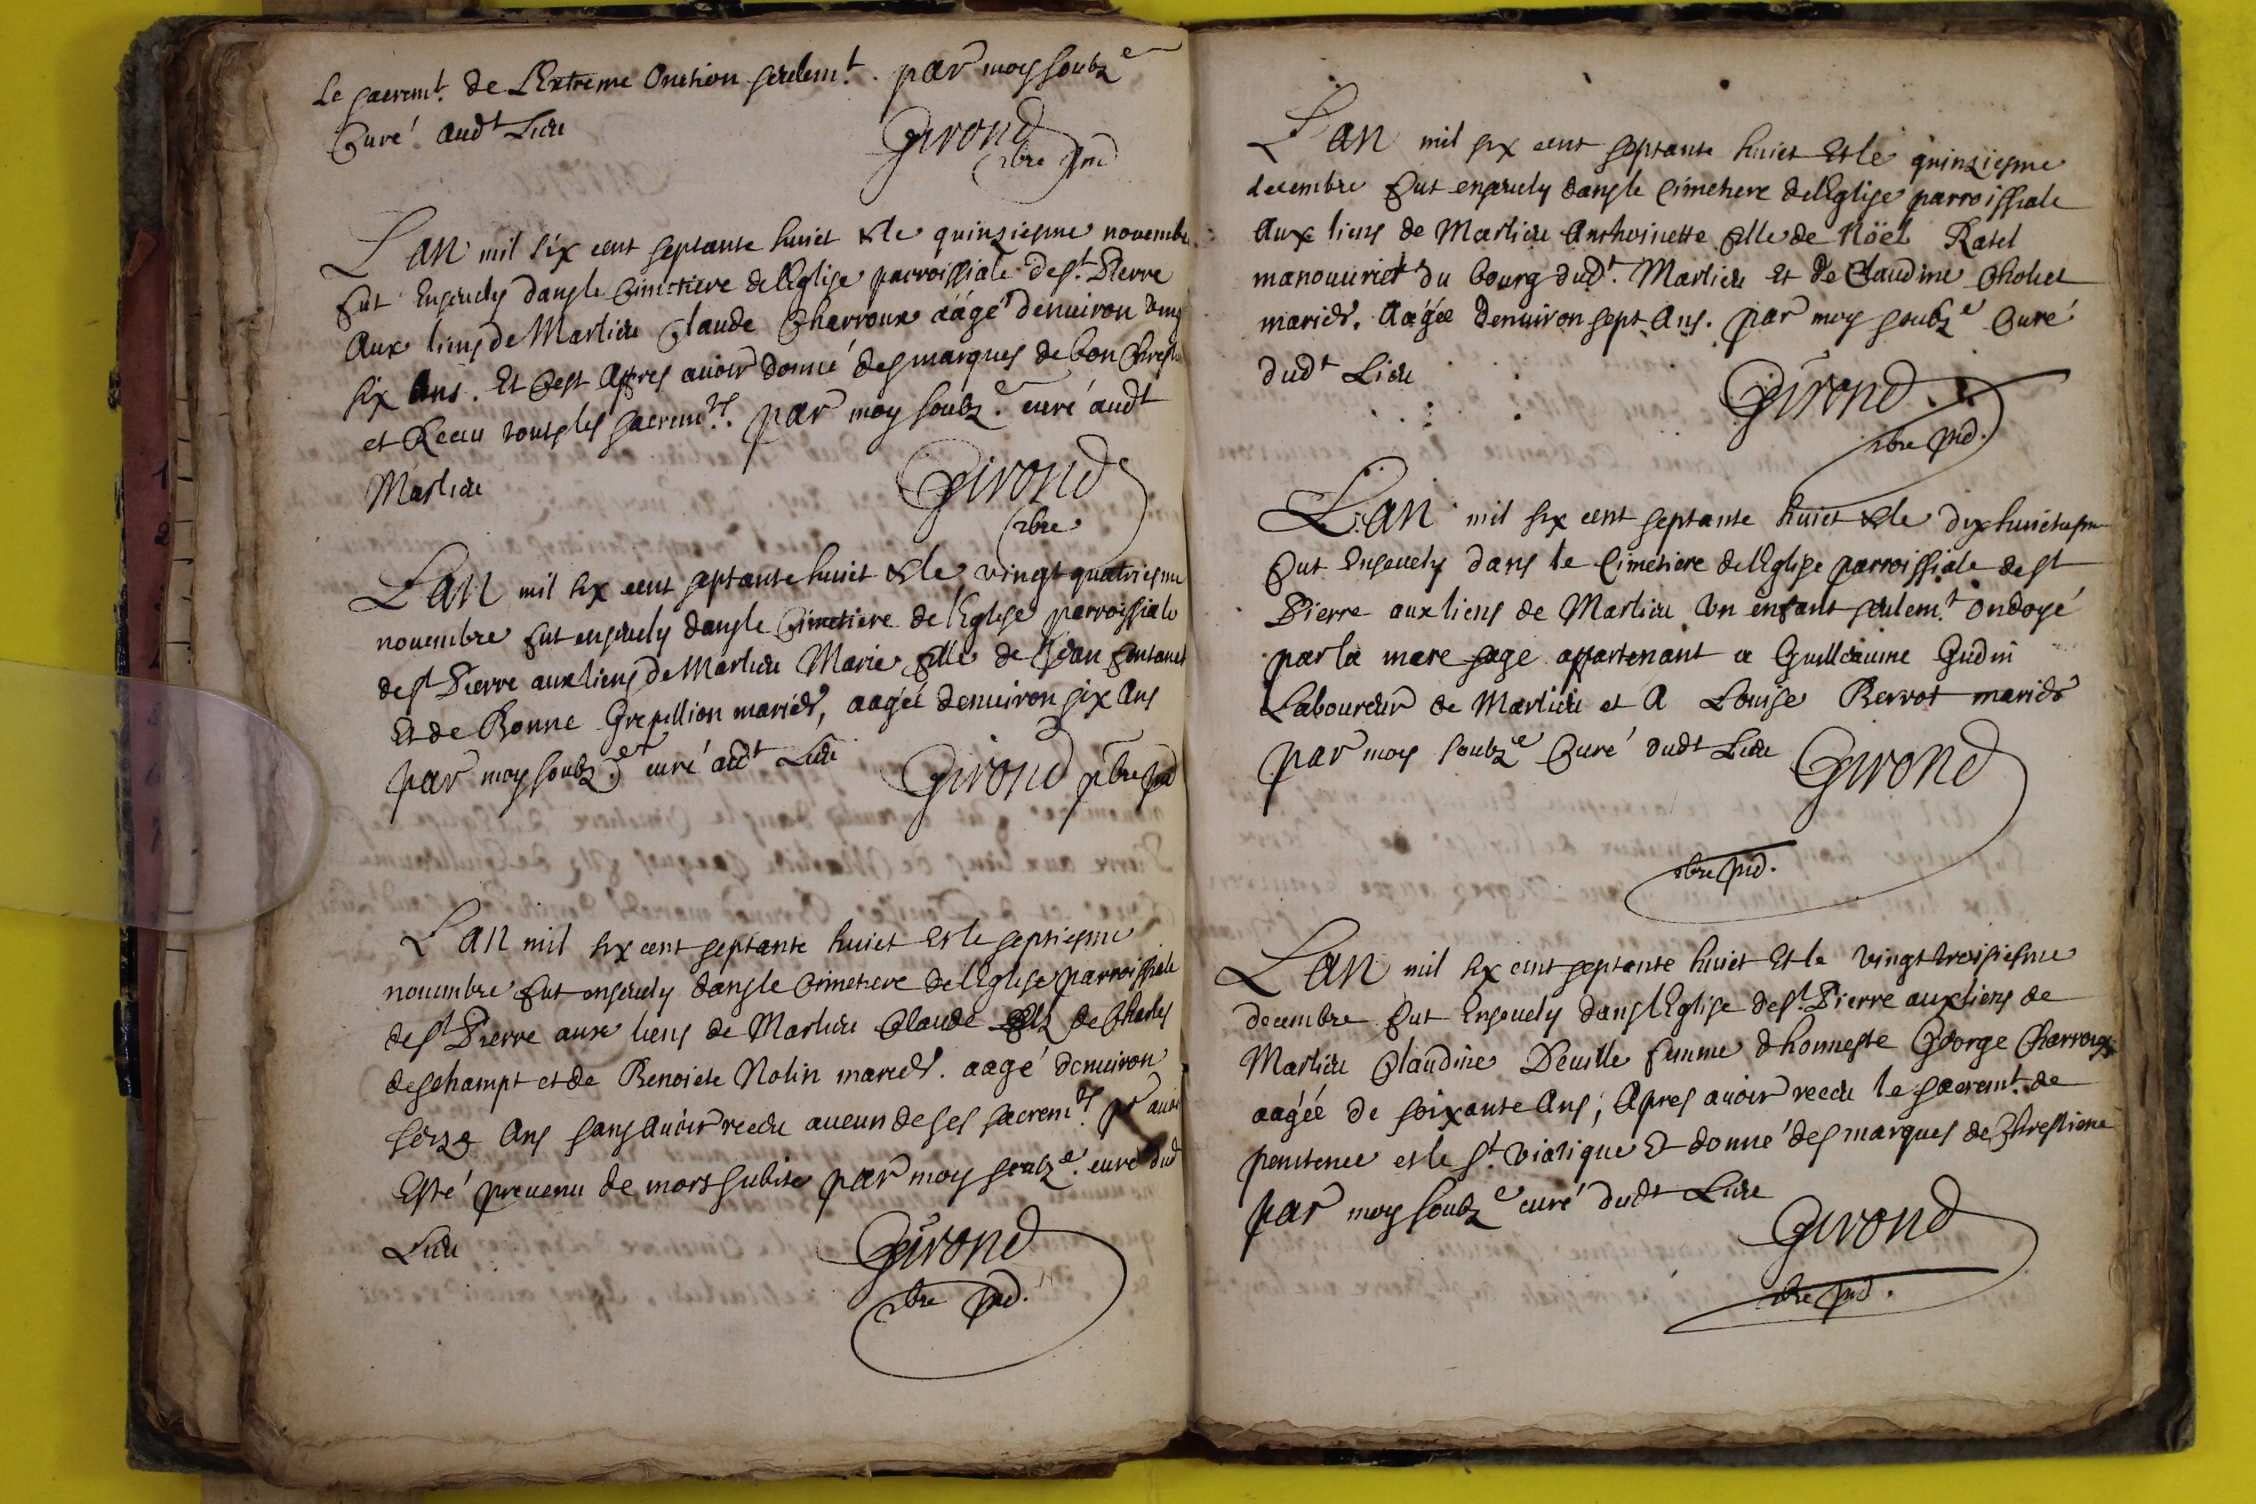 Le sacremt. de L'Extreme Onction seulemt. par moy soubze
Curé audt Lieu
Girond
pbre prd
L'an mil six cent septante huict & le quinziesme novembre
fut Ensevely dans le Cimetiere de l'Eglise parroissiale de st. Pierre
Aux liens de Marlieu Claude Charroux aagé denviron
six Ans. Et C'est Apres avoir donné des marques de bon
et Receu tous les sacremts. par moy soubze. curé audt
Marlieu
Girond
pbre
L'an mil six cent septante huict & le vingt quatriesme
novembre fut ensevely dans le Cimetiere de l'Eglise parroissiale
de st Pierre aux liens de Marlieu Marie fille de Jean Fontanel
Et de Bonne Grepillion mariés, aagée denviron six Ans
par moy soubze. curé audt Lieu Girond pbre prd
L'an mil six cent septante huict et le septiesme
novembre fut ensevely dans le Cimetiere de l'Eglise parroissiale
de st Pierre aux liens de Marlieu Claude filz de Charles
deschampt et de Benoiste Nolin mariés. aagé denviron
seize Ans sans avoir receu aucun de ses sacremts. pr avoir
Esté prevenu de mort subite par moy soubze. curé dud
Lieu
Girond
pbre prd.
L'an mil six cent septante huict Et le quinziesme
decembre fut ensevely dans le Cimetiere de l'Eglise parroissiale
Aux liens de Marlieu Anthoinette fille de Noël Ratel
manouvrier du bourg dudt. Marlieu Et de Claudine Cholet
mariés. Aagée denviron sept Ans. par moy soubze Curé
dudt Lieu
Girond
pbre prd.
L'an mil six cent septante huict & le dix huictiesme
fut Ensevely dans le Cimetiere de l'Eglise parroissiale de st
Pierre aux liens de Marlieu Un enfant seulemt. ondoyé
par la mere sage appartenant a Guilleaume Gudin
Laboureur de Marlieu et A Louise Berrot mariés
par moy soubze Curé dudt Lieu Girond
pbre prd.
L'an mil six cent septante huict Et le vingt troisiesme
decembre fut Ensevely dans l'Eglise de st. Pierre aux liens de
Marlieu Claudine Deville femme d'honneste George Charroux
aagée de soixante Ans, Apres avoir receu le sacremt. de
penitence et le st. viatique Et donné des marques de Chrestiene
par moy soubze curé dudt Lieu
Girond
pbre prd.